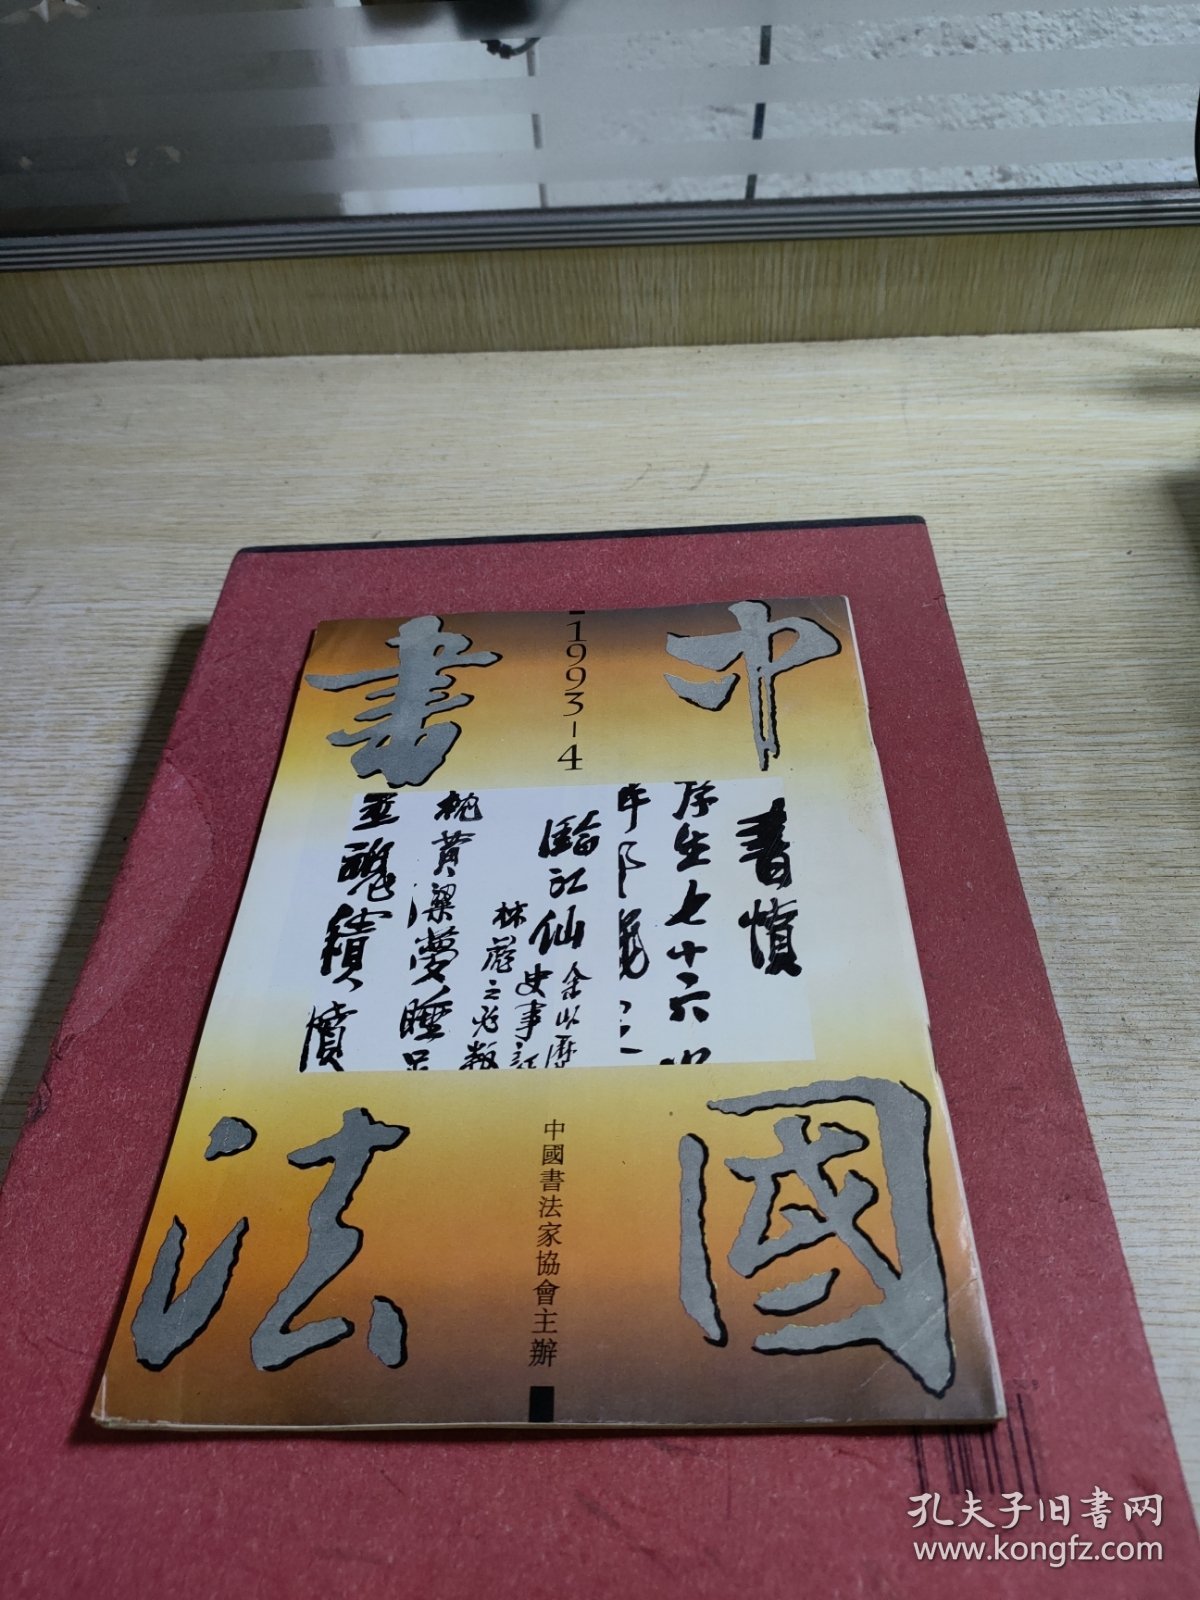 中國
書法
1993-4
書憤
生七十六
臨江仙
余以歷
史事
林彪之
枕黃粱夢睡
魂
憤
中國書法家協會主辦
孔夫子旧书网
www.kongfz.com